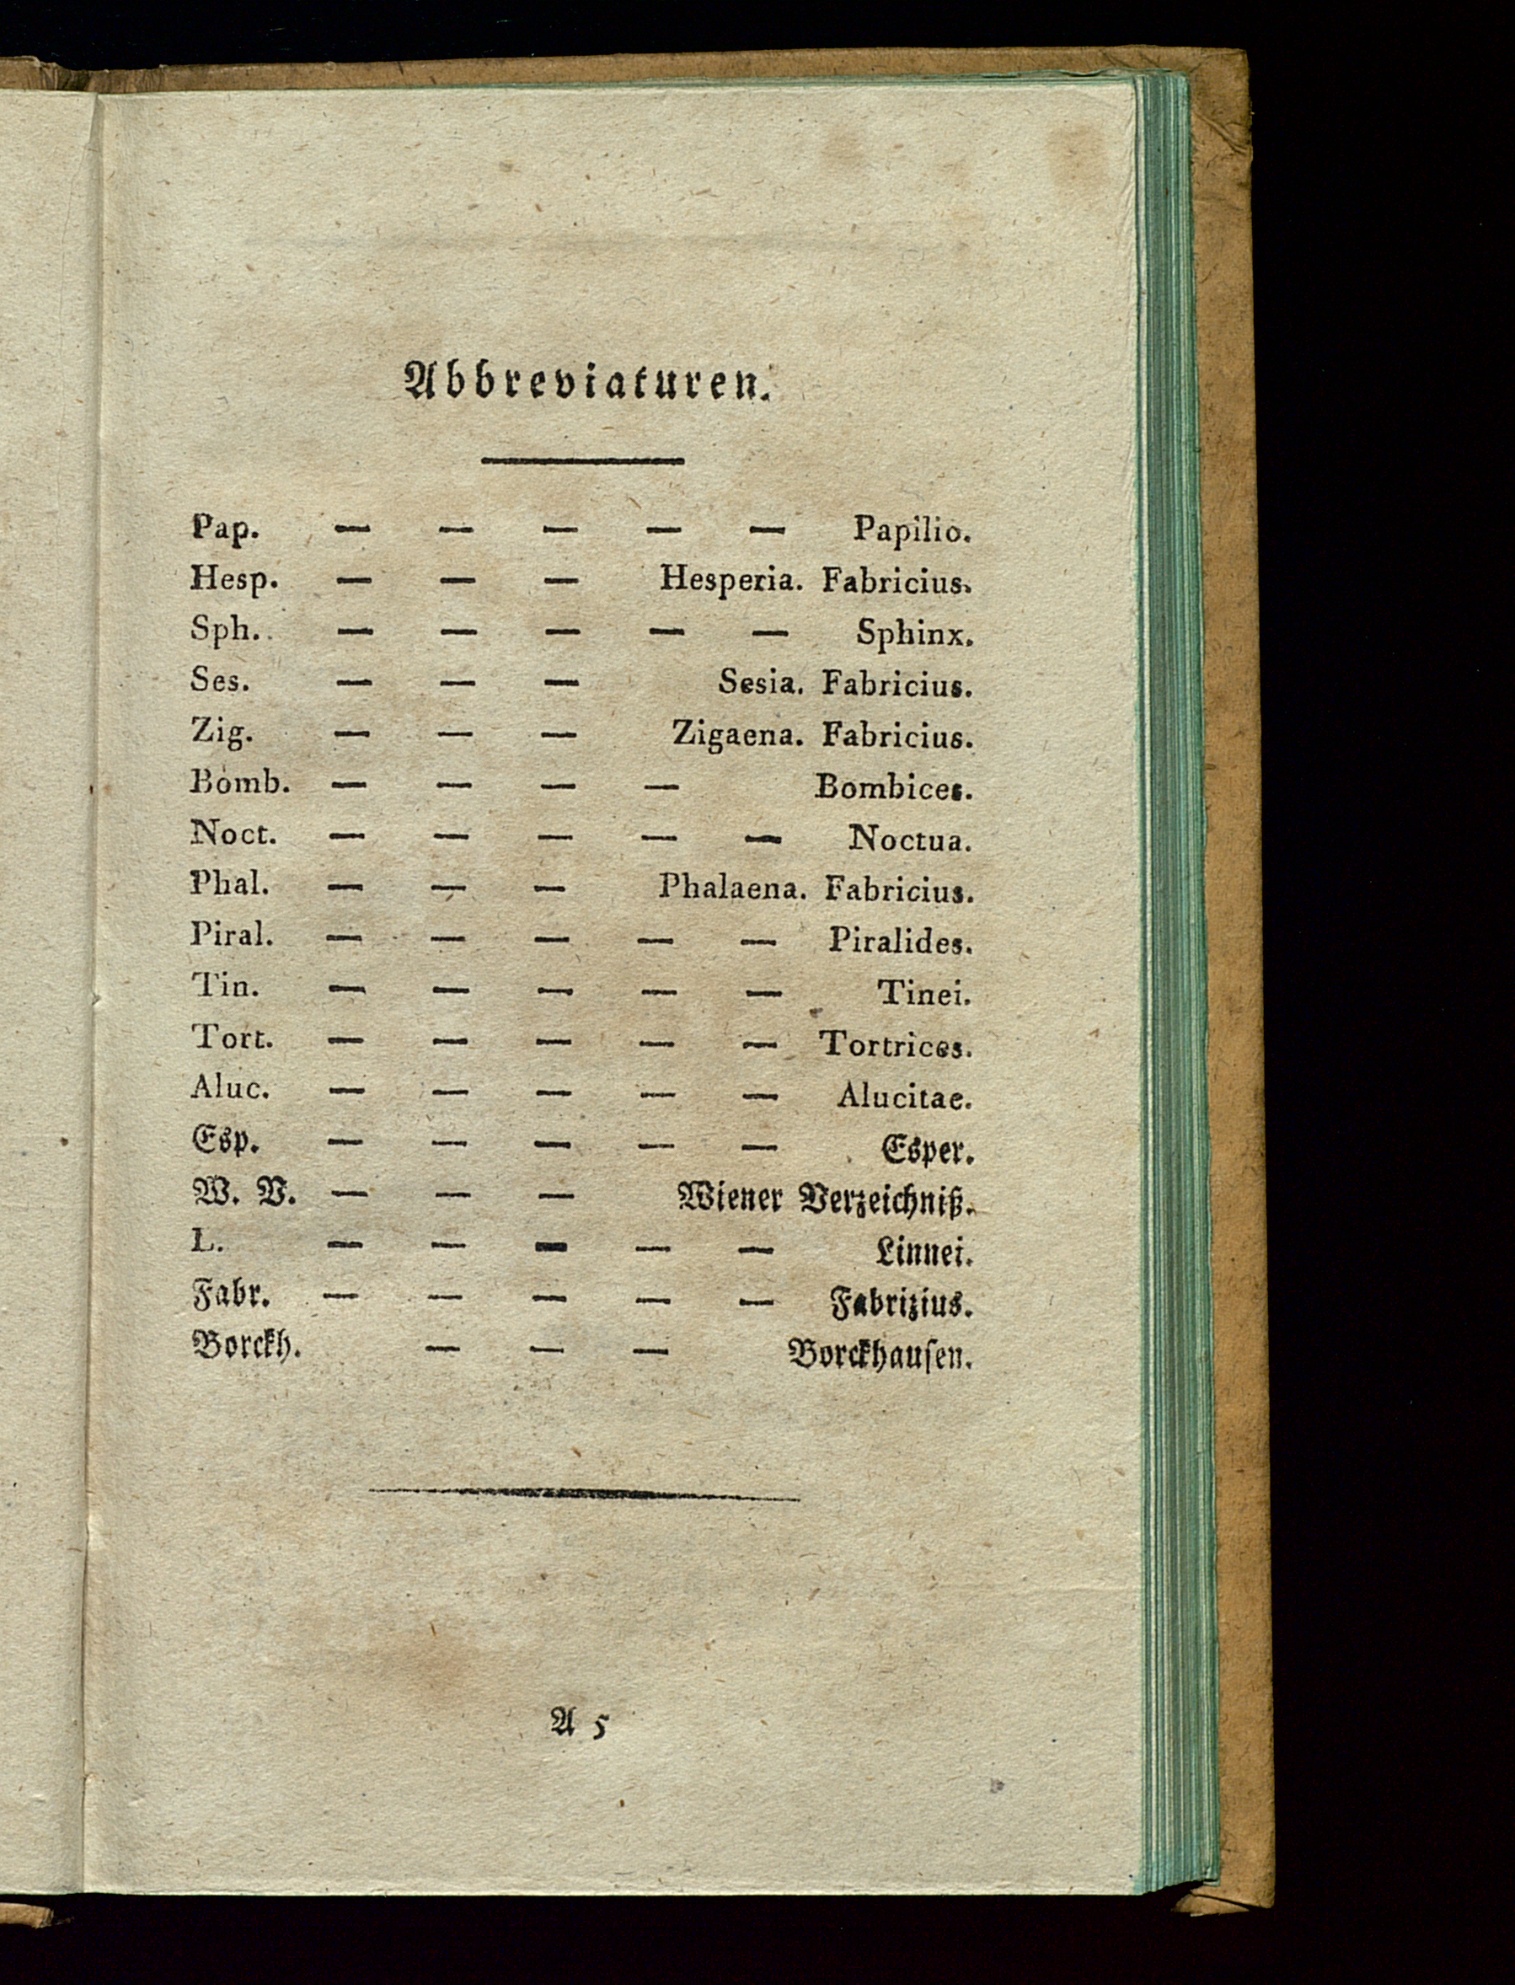 Abbreviaturen.
Pap. — — — — — Papilio.
Hesp. — — — Hesperia. Fabricius.
Sph. — — — — — Sphinx.
Ses. — — — Sesia. Fabricius.
Zig. — — — Zigaena. Fabricius.
Bomb. — — — — Bombices.
Noct. — — — — — Noctua.
Phal. — — — Phalaena. Fabricius.
Piral. — — — — — Piralides.
Tin. — — — — — Tinei.
Tort. — — — — — Tortrices.
Aluc. — — — — — Alucitae.
Esp. — — — — — Esper.
W. V. — — — Wiener Verzeichniß.
L. — — — — — Linnei.
Fabr. — — — — — Fabrizius.
Borckh. — — — Borckhauſen.
A 5